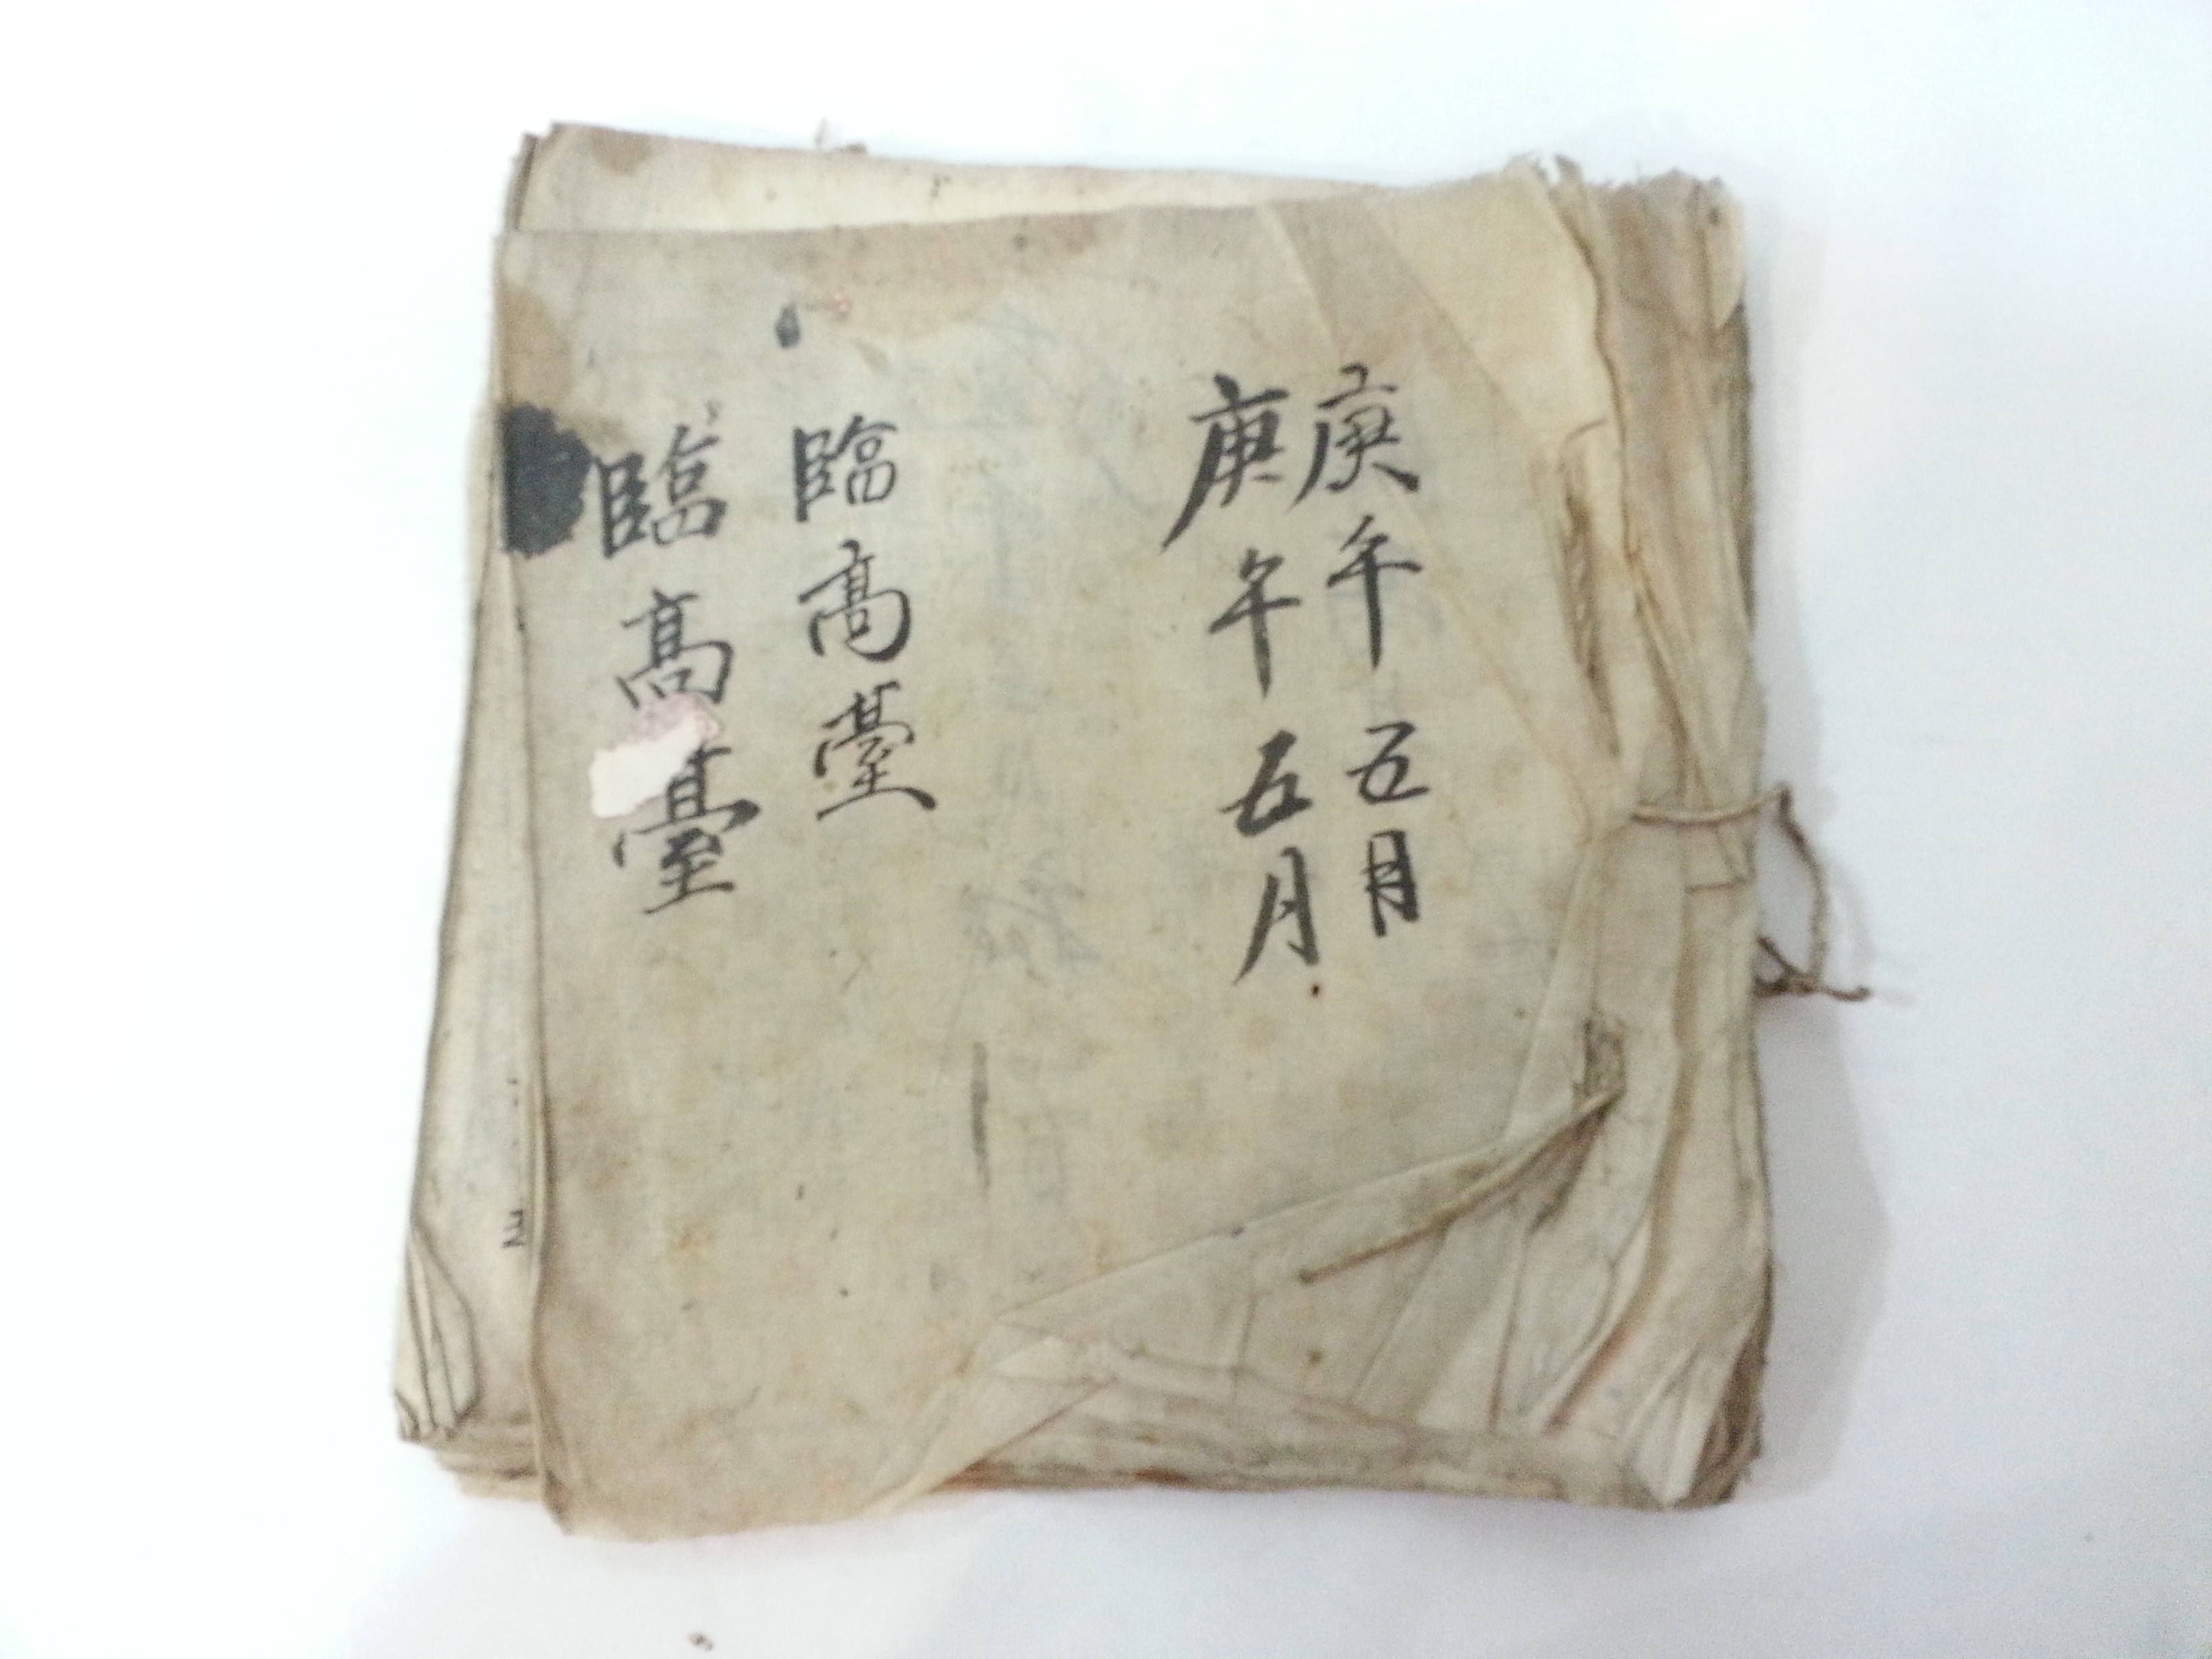 庚午五月
庚午五月
臨高臺
臨高臺